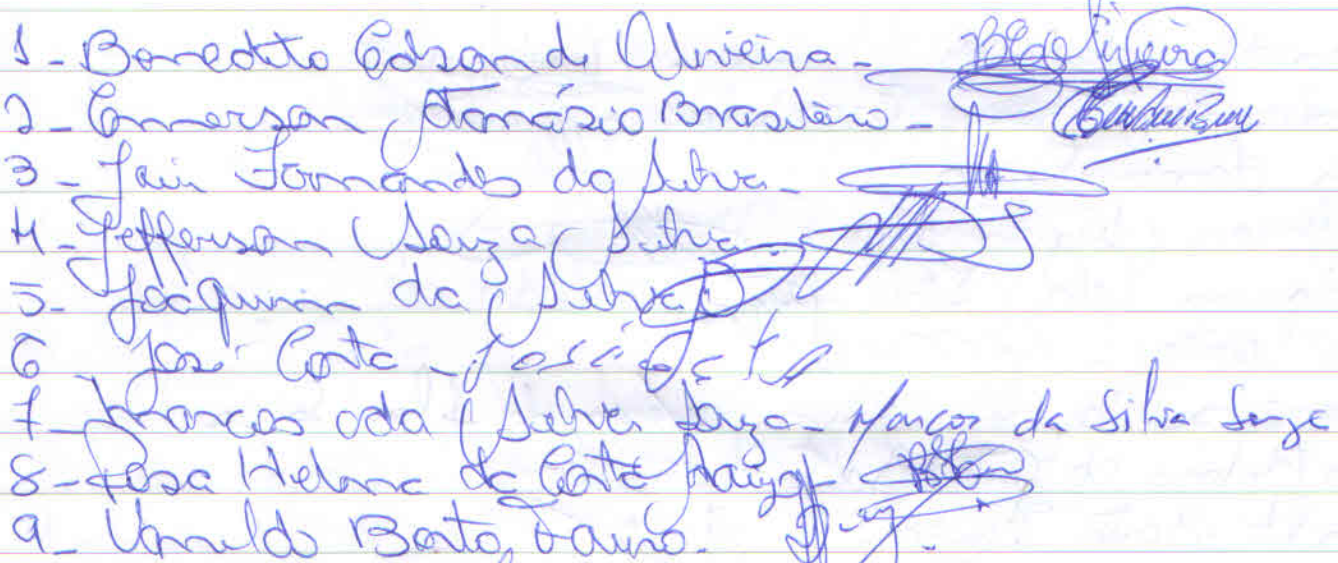 1- Benedito Edson de Oliveira-
2- Emmerson Atanásio Brasileiro-
3- Jair Fernandes da Silva-
4- Jefferson Souza Silva
5- Joaquim da Silva
6 José Costa - José Costa
7- Marcos da Silva Souza- Marcos da Silva Souza
8- Rosa Helena da Costa
9- Bento